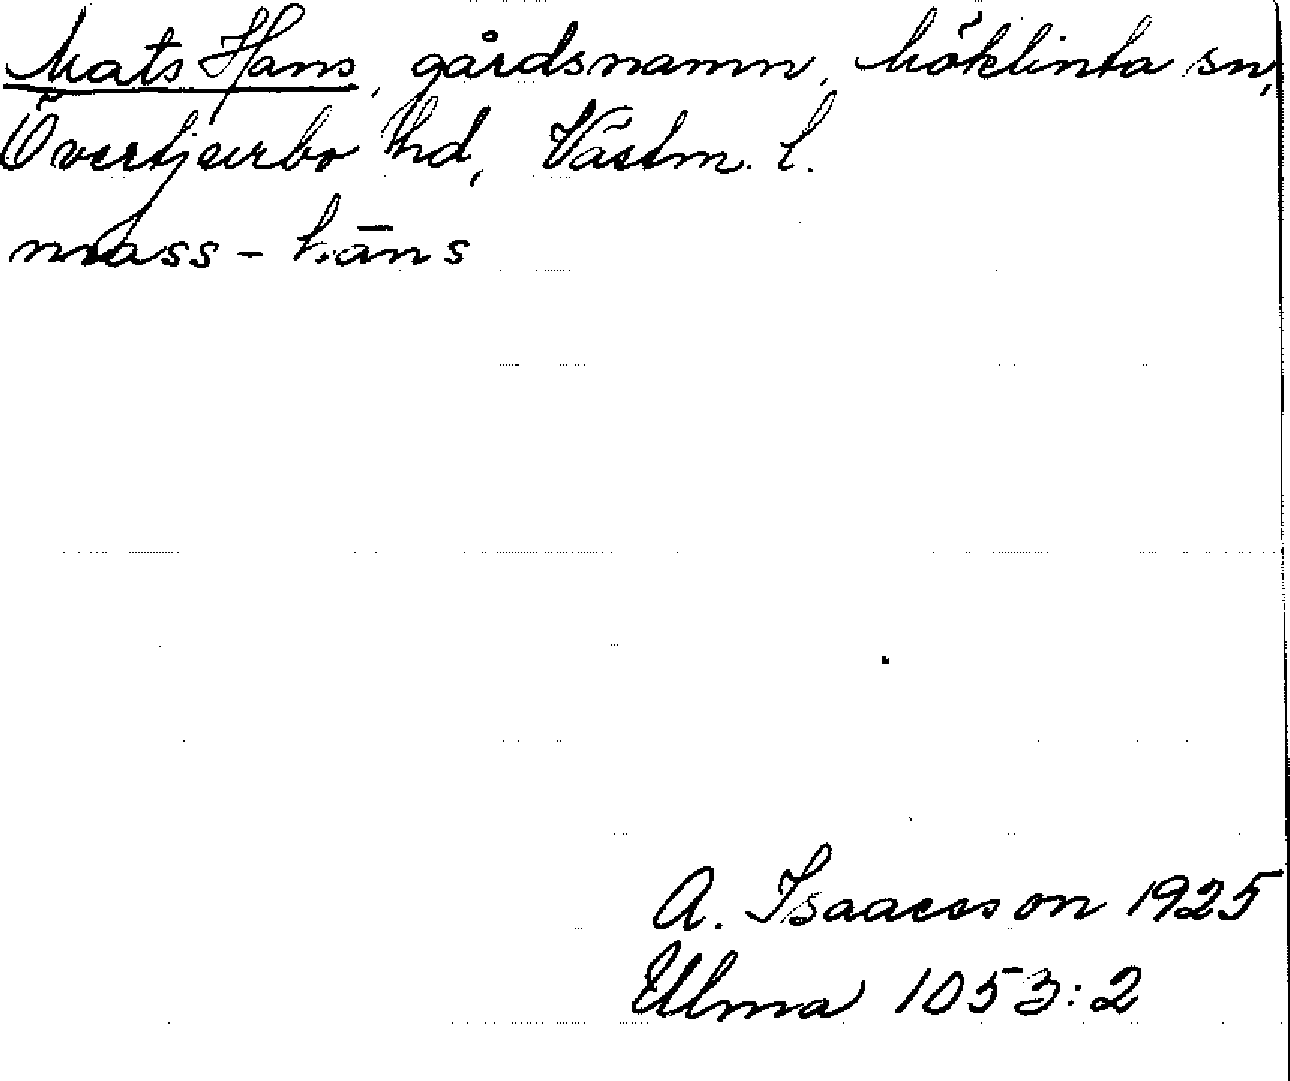 Mats Hans, gårdsnamn, Möklinta sn,
Övertjurbo hd, Västm. l.
mass-hāns
A. Isaacsson 1925
Ulma 1053:2